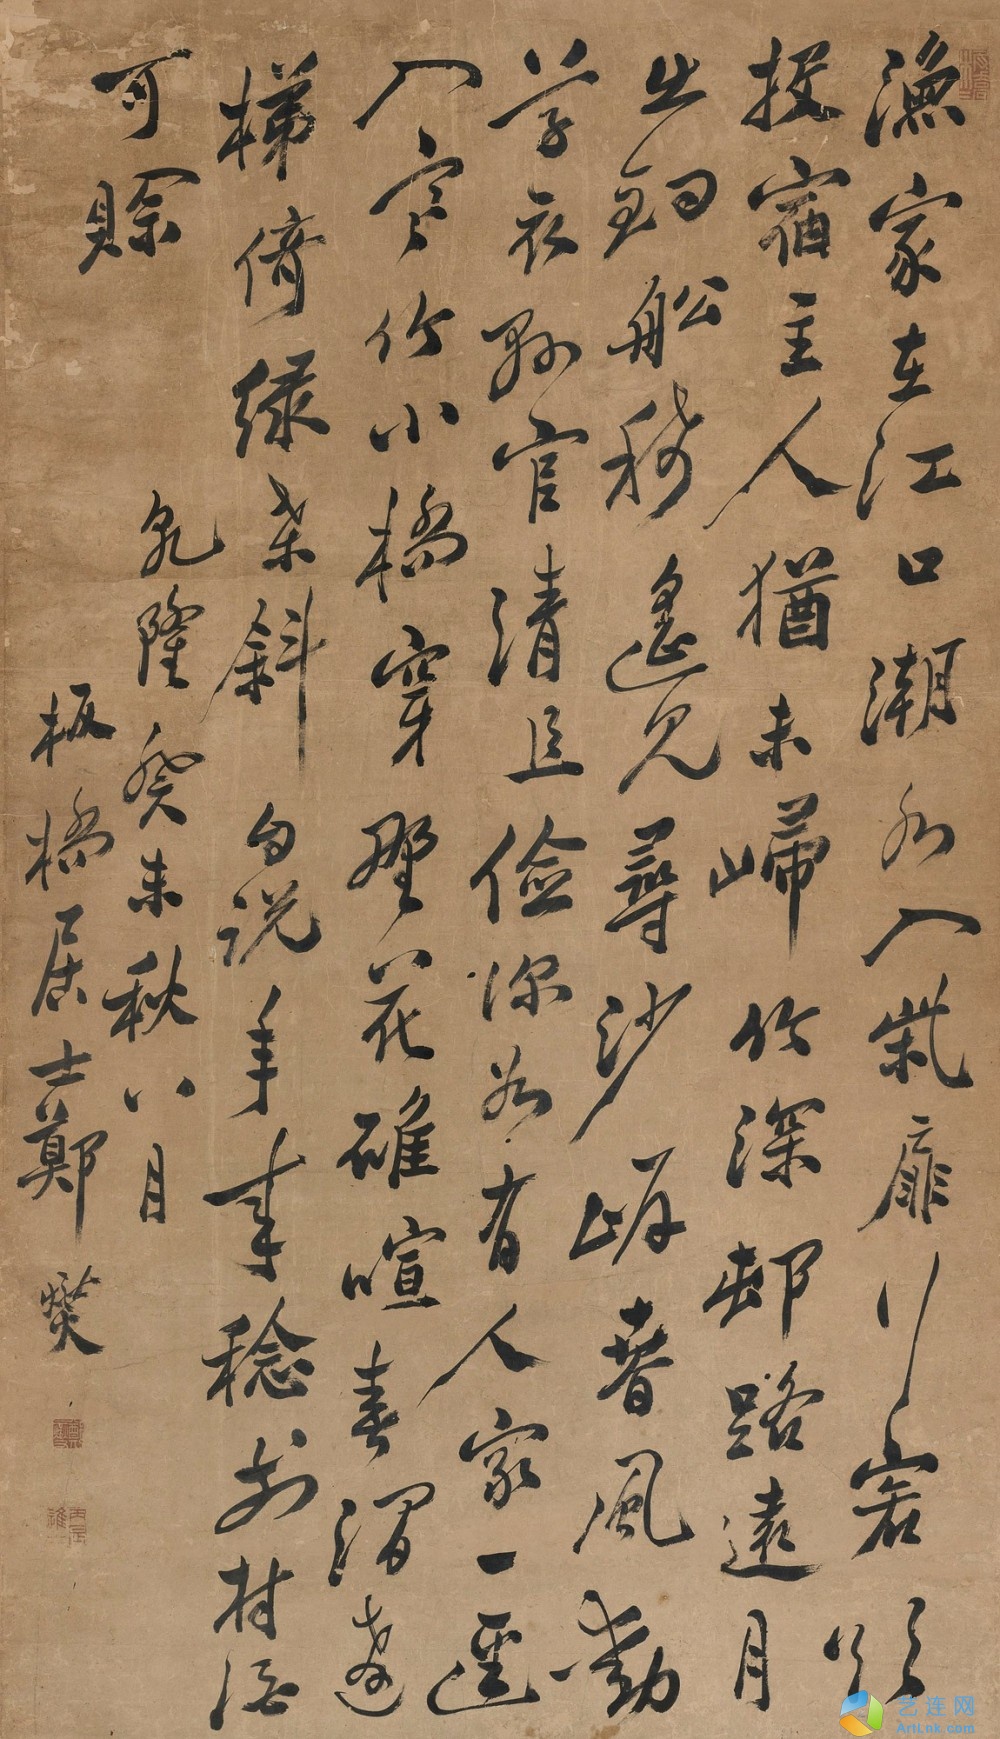 漁家在江口潮水入柴扉行客欲
投宿主人猶未歸竹深邨路遠月
出釣舩稀遙見尋沙岸春風動
草衣縣官清且儉深谷有人家一逕
入寒竹小橋穿野花碓喧春澗
梯倚綠桑斜自說年來稔前村酒
可賒
乾隆癸未秋八月
板橋居士鄭燮
艺连网
ArtLnk.com